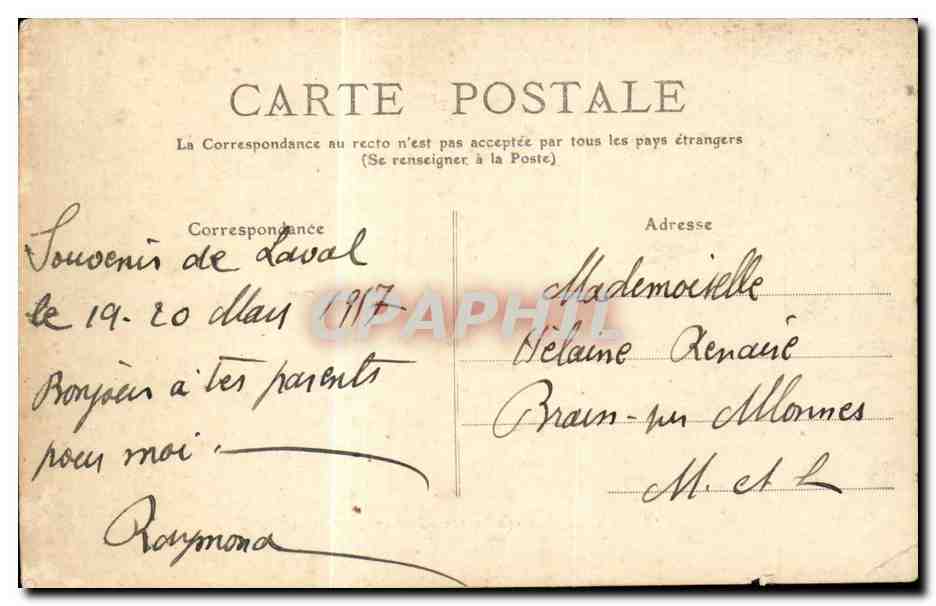 CARTE POSTALE
La Correspondance au recto n'est pas acceptée par tous les pays étrangers
(Se renseigner à la Poste)
Correspondance
Souvenir de Laval
le 19-20 Mars 1917
Bonjour à tes parents
pour moi.
Raymond
Adresse
Mademoiselle
Hélaine
Brain-sur Allonnes
M. et L
CPAPHIL